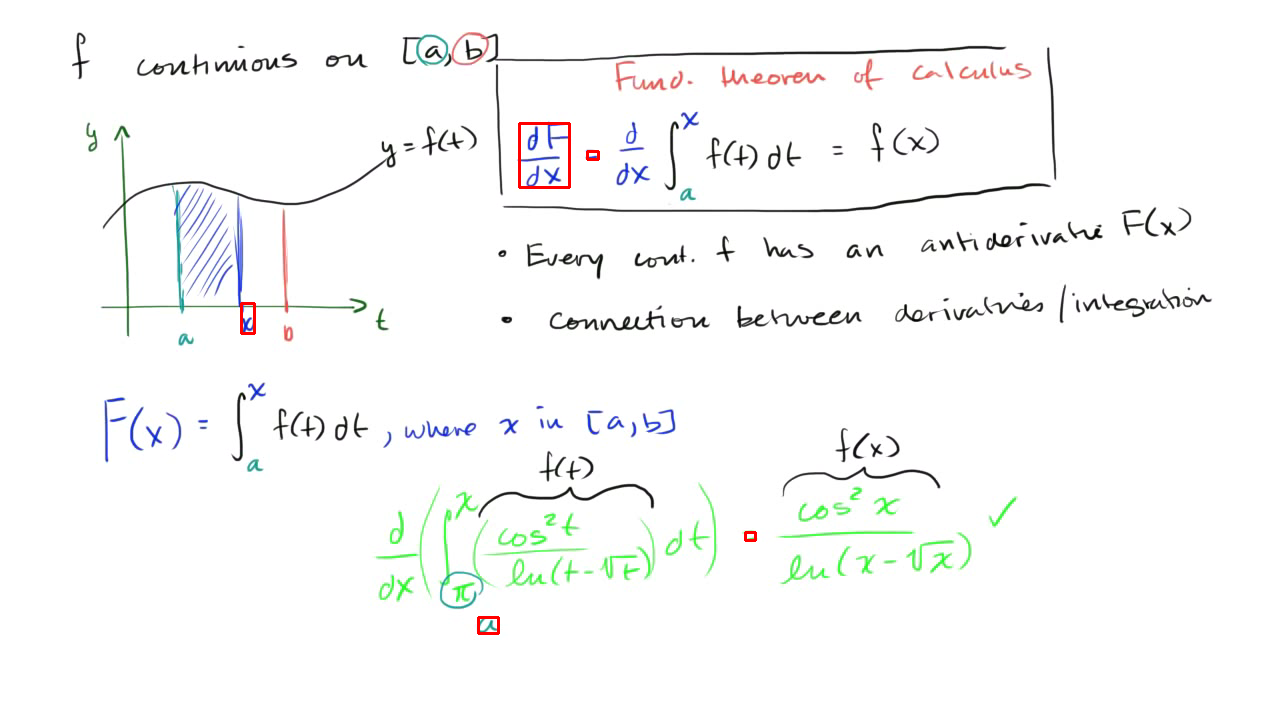 f continuous on [a, b]
Fund. theorem of calculus
dF/dx = d/dx ∫_a^x f(t) dt = f(x)
y
y = f(t)
a x b t
• Every cont. f has an antiderivative F(x)
• connection between derivatives / integration
F(x) = ∫_a^x f(t) dt , where x in [a, b]
f(t) f(x)
d/dx ( ∫_π^x ( cos² t / ln(t - √t) ) dt ) = cos² x / ln(x - √x) ✓
a